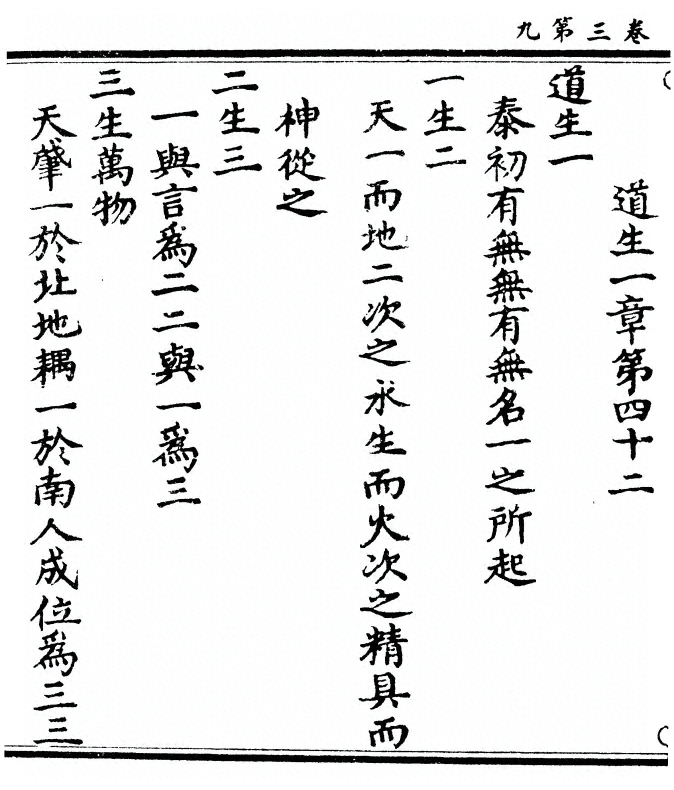 卷三第九
道生一章第四十二
道生一
泰初有無無有無名一之所起
一生二
天一而地二次之水生而火次之精具而
神從之
二生三
一與言爲二二與一爲三
三生萬物
天肇一於北地耦一於南人成位爲三三